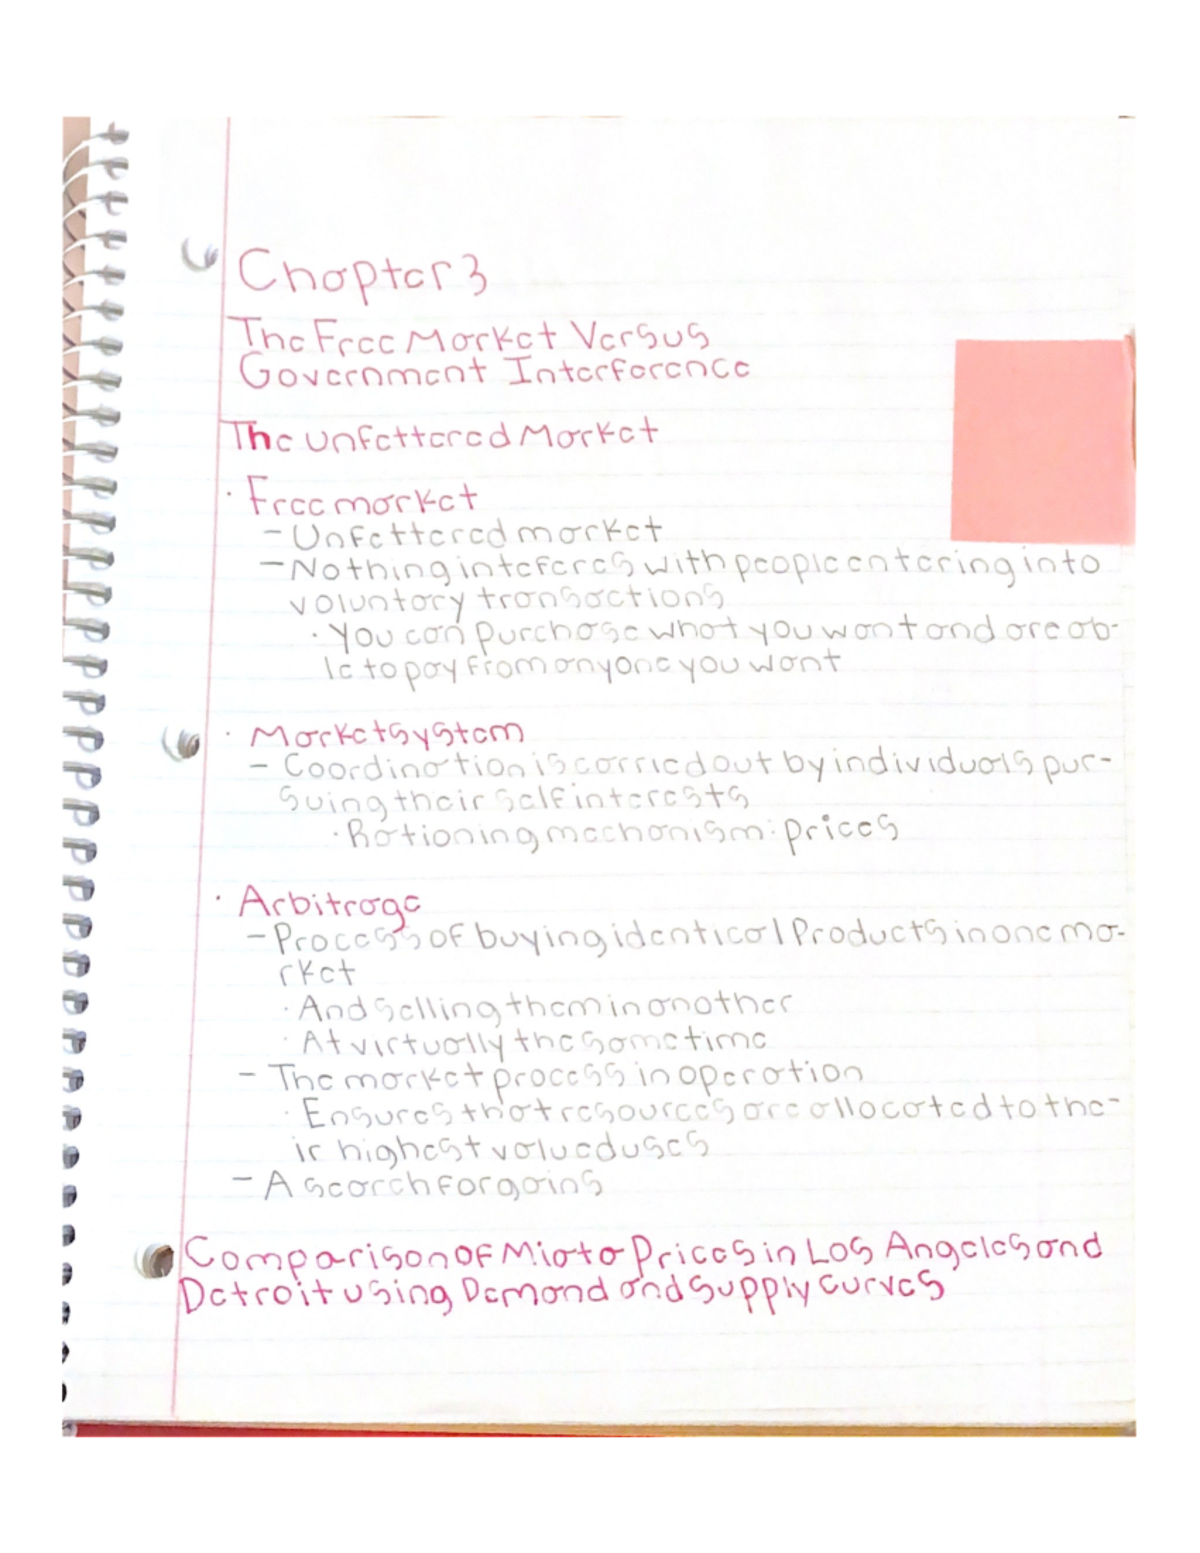 Chapter 3
The Free Market Versus
Government Interference
The Unfettered Market
· Free market
- Unfettered market
- Nothing inteferes with people entering into
voluntary transactions
· You can purchase what you want and are ab-
le to pay from anyone you want
· Market system
- Coordination is carried out by individuals pur-
suing their self interests
· Rationing mechanism: prices
· Arbitrage
- Process of buying identical Products in one ma-
rket
· And selling them in another
· At virtually the same time
- The market process in operation
· Ensures that resources are allocated to the-
ir highest valued uses
- A search for gains
Comparison of Miata Prices in Los Angeles and
Detroit using Demand and Supply curves